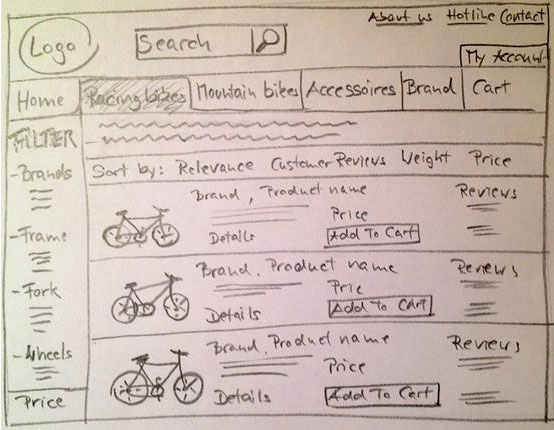 About us Hotline Contact
Logo
Search
My Account
Home Racing bikes Mountain bikes Accessoires Brand Cart
FILTER
Sort by: Relevance Customer Reviews Weight Price
- Brands
- Frame
- Fork
- Wheels
Price
Brand, Product name Reviews
Price
Details Add To Cart
Brand, Product name Reviews
Pric
Details Add To Cart
Brand, Product name Reviews
Price
Details Add To Cart